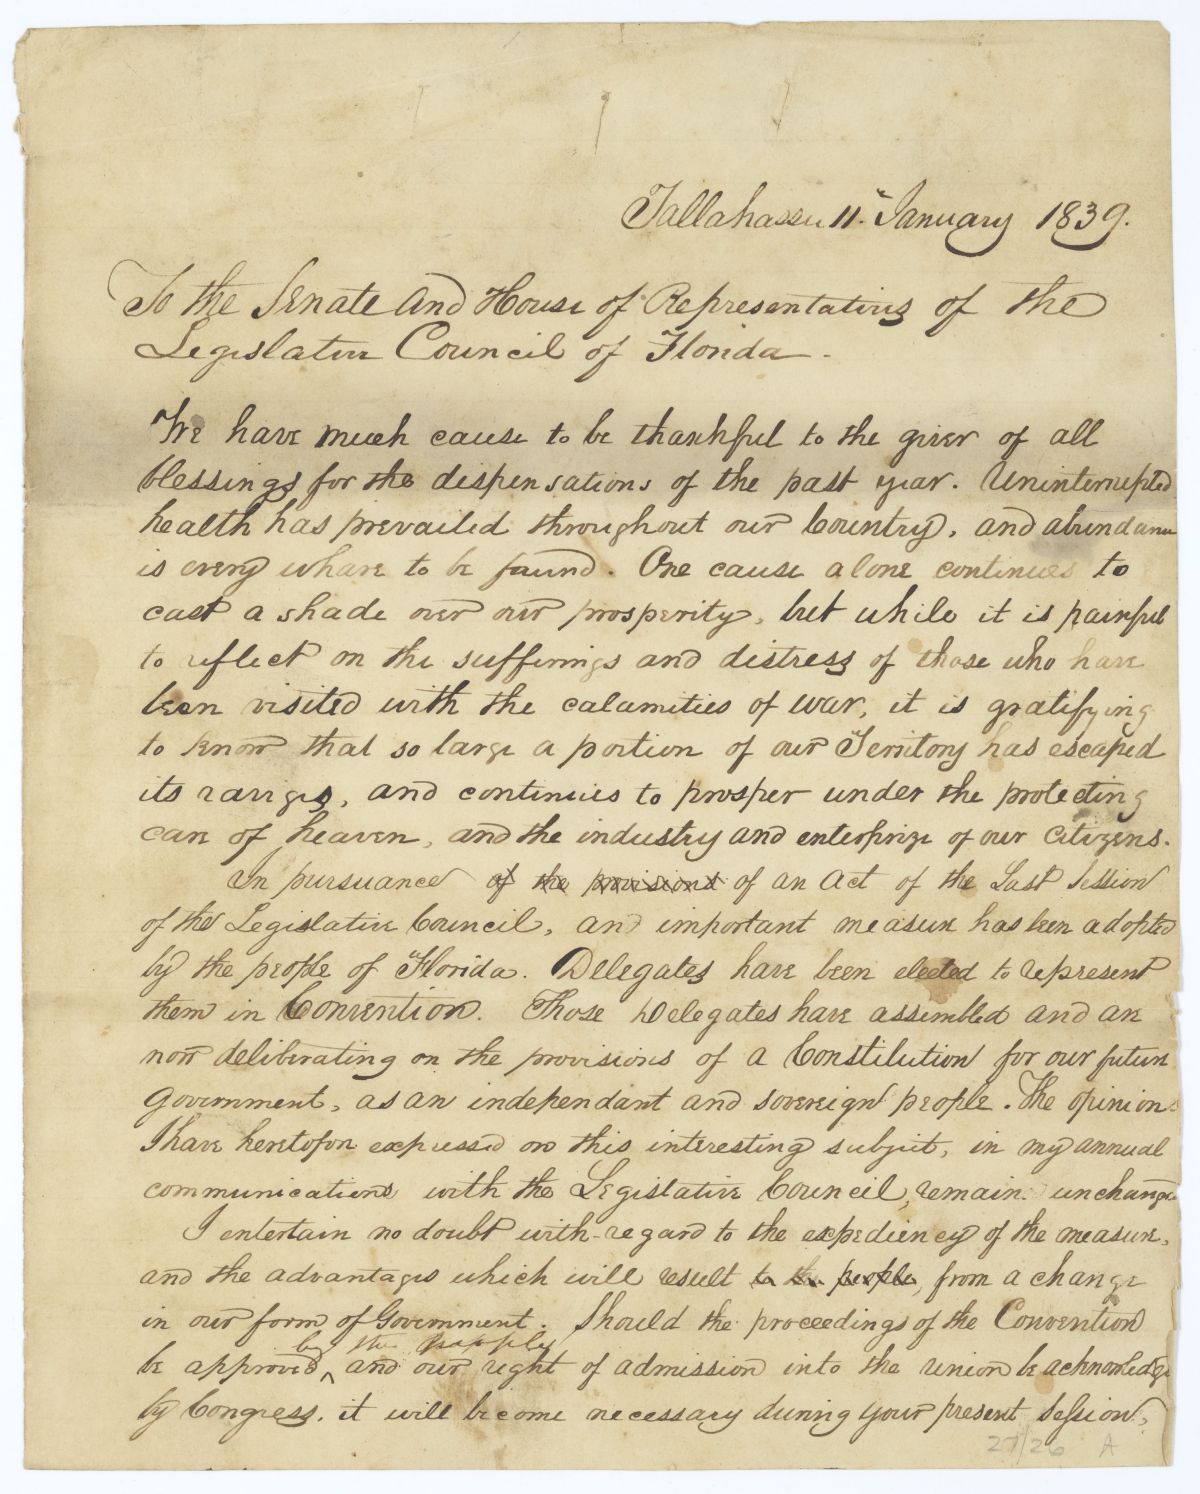 Tallahassee 11. January 1839.
To the Senate and House of Representatives of the
Legislative Council of Florida.
We have much cause to be thankful to the giver of all
blessings for the dispensations of the past year. Uninterrupted
health has prevailed throughout our Country, and abundance
is every whare to be found. One cause alone continues to
cast a shade over our prosperity, but while it is painful
to reflect on the sufferings and distress of those who have
been visited with the calamities of war, it is gratifying
to know that so large a portion of our Territory has escaped
its raviges, and continues to prosper under the protecting
care of heaven, and the industry and enterprize of our Citizens.
In pursuance of the provisions of an Act of the Last Session
of the Legislative Council, and important measure has been adopted
by the people of Florida. Delegates have been elected to represent
them in Convention. Those Delegates have assembled and are
now deliberating on the provisions of a Constitution for our future
Government, as an independant and sovereign people. The opinions
I have heretofore expressed on this interesting subject, in my annual
communications with the Legislative Council, remain unchanged
I entertain no doubt with regard to the expediency of the measure,
and the advantages which will result to the people, from a change
in our form of Government. Should the proceedings of the Convention
by the people
be approved, and our right of admission into the union be acknowledge
by Congress, it will become necessary during your present Session,
27/26 A